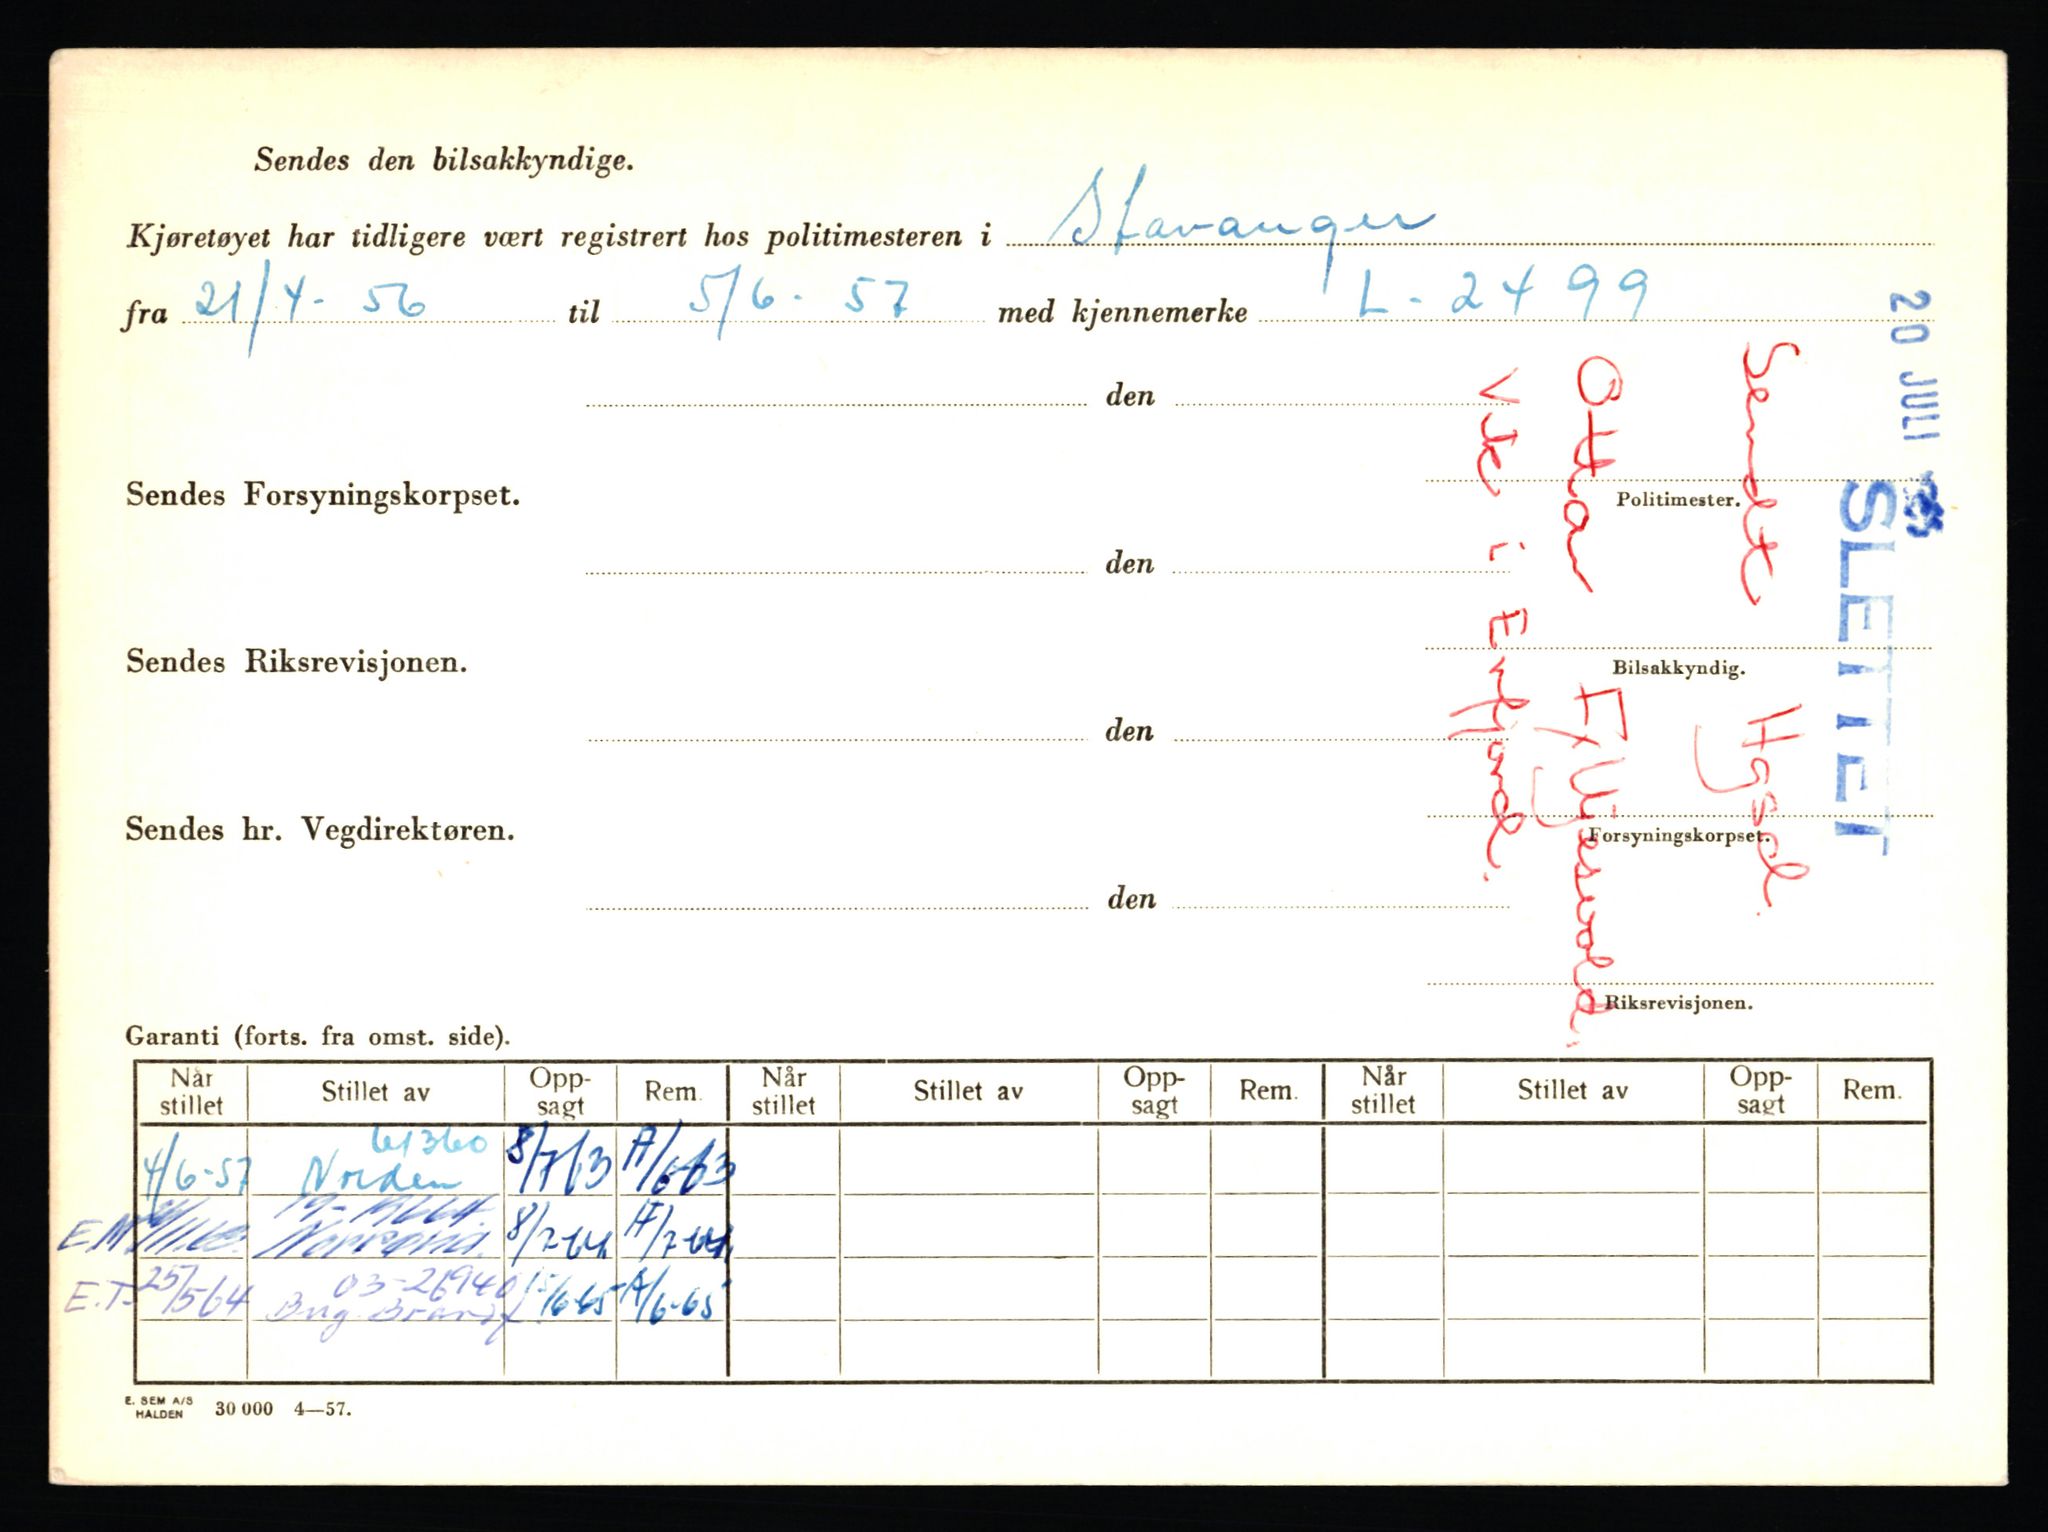 Sendes den bilsakkyndige.
Kjøretøyet har tidligere vært registrert hos politimesteren i Stavanger
fra 21/4-56 til 5/6-57 med kjennemerke L-2499
den
Politimester.
Sendes Forsyningskorpset.
den
Bilsakkyndig.
Sendes Riksrevisjonen.
den
Forsyningskorpset.
Sendes hr. Vegdirektøren.
den
Riksrevisjonen.
20 JULI
SLETTET
Sendt
Ottar
Vik i
Garanti (forts. fra omst. side).
Når stillet Stillet av Opp-sagt Rem. Når stillet Stillet av Opp-sagt Rem. Når stillet Stillet av Opp-sagt Rem.
61360
4/6-57 Norden 8/7/63 A/6-63
E.M. 8/7-64 A/7-64
03-26940
E.T. 25/5 64 Brandf. 15/6-65 A/6-65
E. SEM A/S
HALDEN 30 000 4—57.